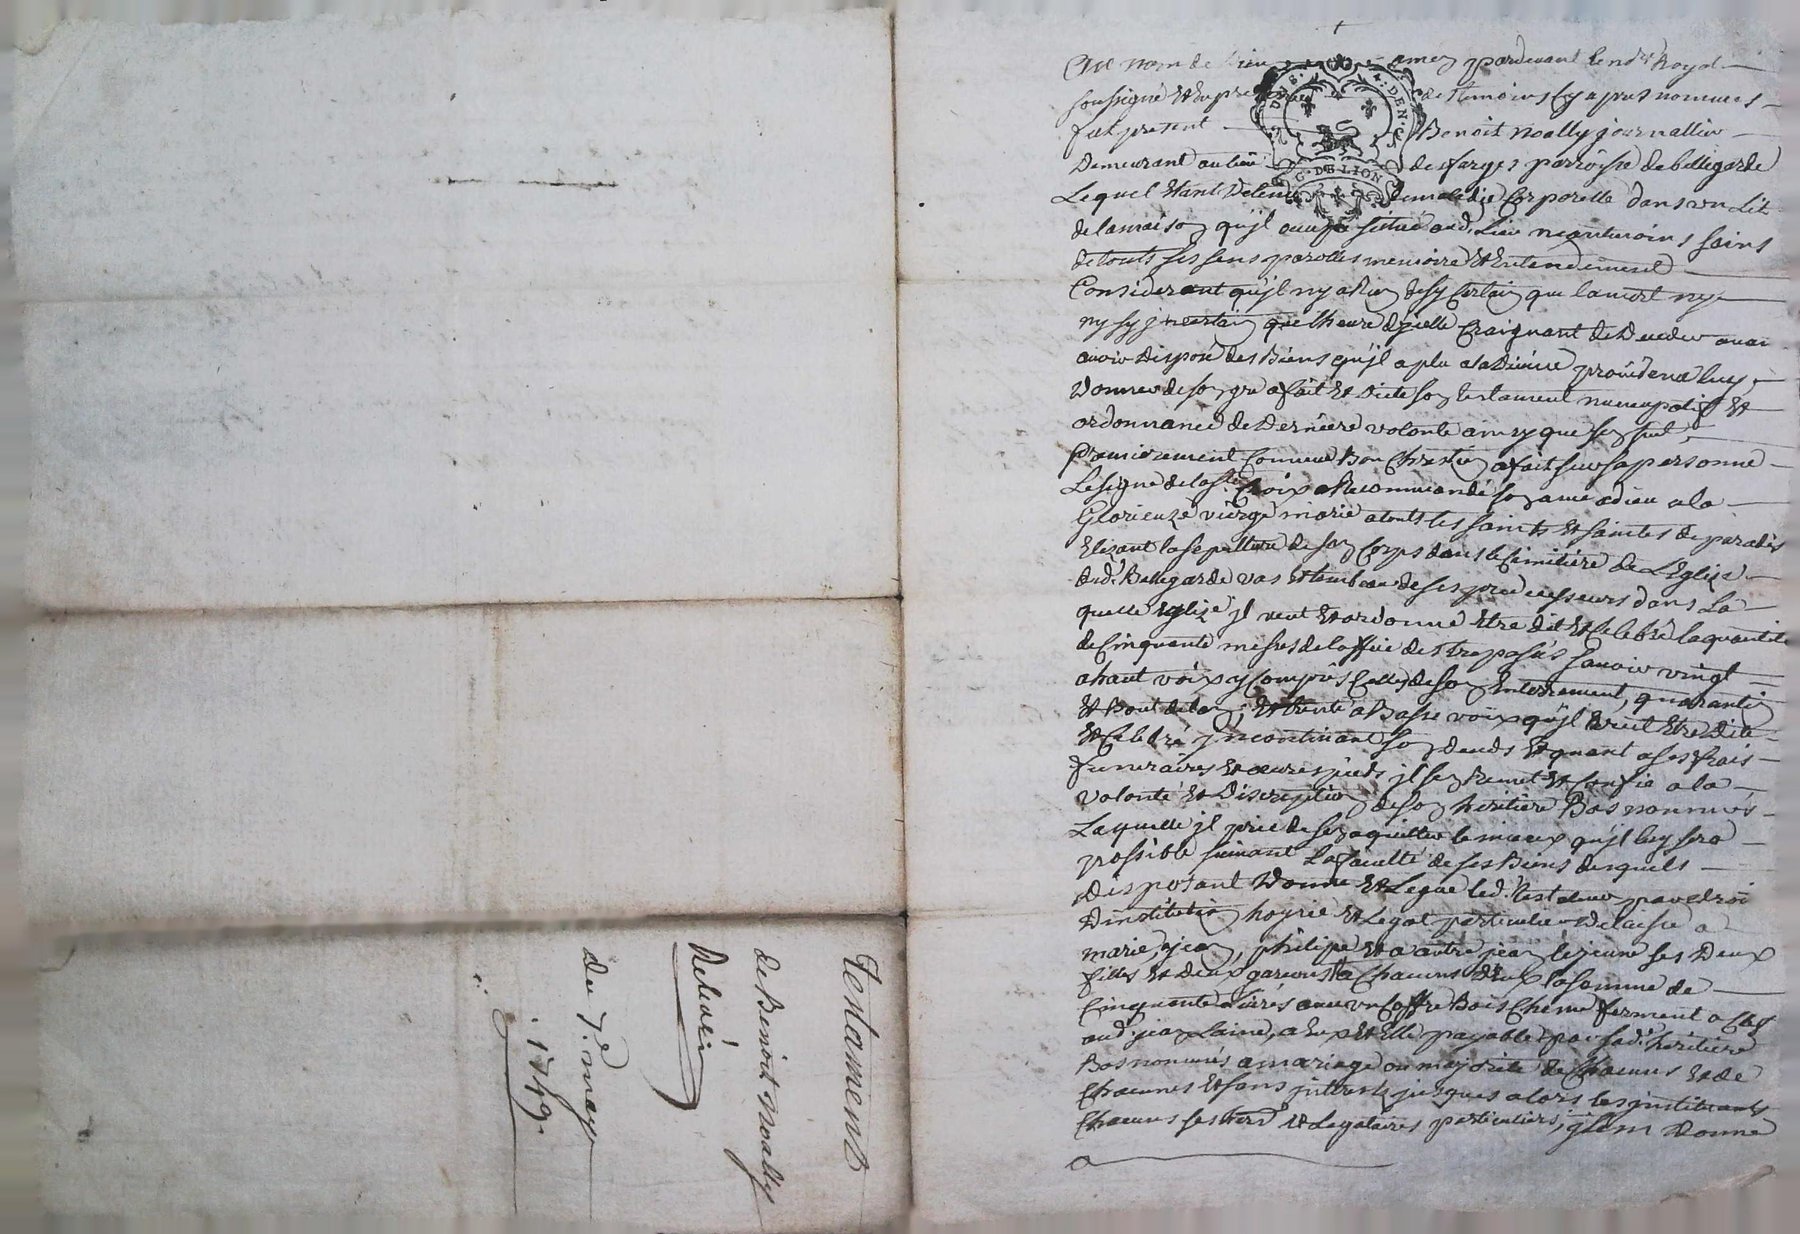 Au nom de Dieu amen pardevant le nore Royal
soussigné et en presence de temoins cy apres nommes
fut present Benoit Noally journallier
Demeurant au lieu des farges parroisse de bellegarde
Lequel Etant Detenu de maladie Corporelle dans un Lit
de la maison qu'jl occupe situé aud. Lieu neantmoins sains
de touts ses sens parolles memoire Et Entendement
Considerant qu'jl ny a Rien de sy Certain que la mort ny
ny sy jncertain que l'heure d'jcelle Craignant de Deceder avan
avoir Disposé des Biens qu'jl a plu a la Divine providence luy
Donner de son gré a fait Et Dicté son testament nuncupatif Et
ordonnance de Derniere volonté ainsy que sen suit
Premierement Comme Bon Chrestien a fait sur sa personne
Le signe de la Ste Croix a Recommandé son ame a dieu a la
Glorieuze vierge marie a touts les saints Et saintes de paradis
Elizant la sepulture de son Corps dans le Cimitiere de L'Eglize
dud. Bellegarde vas Et tombeau de ses predecesseurs dans La
quelle Eglize jl veut Et ordonne Etre dit Et Celebré la quantité
de Cinquante messes de l'office des trepasés sçavoir vingt
a haut voix y Compris Celles de son Enterrement, quarantin
Et Bout de lan, Et trente a Basse voix qu'jl veut Etre dite
Et Celebré jncontinant son deceds Et quant a ses frais
funeraires Et œuvres pieds jl sen Remet Et Confie a la
volonté Et Discreption de son heritiere Bas nommés
Laquelle jl prie de sen aquitter le mieux qu'jl luy sera
possible suivant La faculté de ses Biens desquels
Disposant Donne Et Legue led. testateur par droi
D'institution hoyrie Et Legat particulier Delaisse a
marie, jean, philipe Et a autre jean le jeune ses Deux
filles Et Deux garcons a Chacuns D'Eux la somme de
Cinquante Livres avec un Coffre Bois Chene fermant a Clef
aud. jean Lainé, a Eux Et Elle payable par sad. heritiere
Bas nommés a mariage ou majorité de Chacuns Et de
Chacunes Et sans jntherets jusques alors les jnstituants
Chacuns ses hers Et Legataires particuliers, jtem Donne
Testament
de Benoit Noally
Du 7e may
1749.